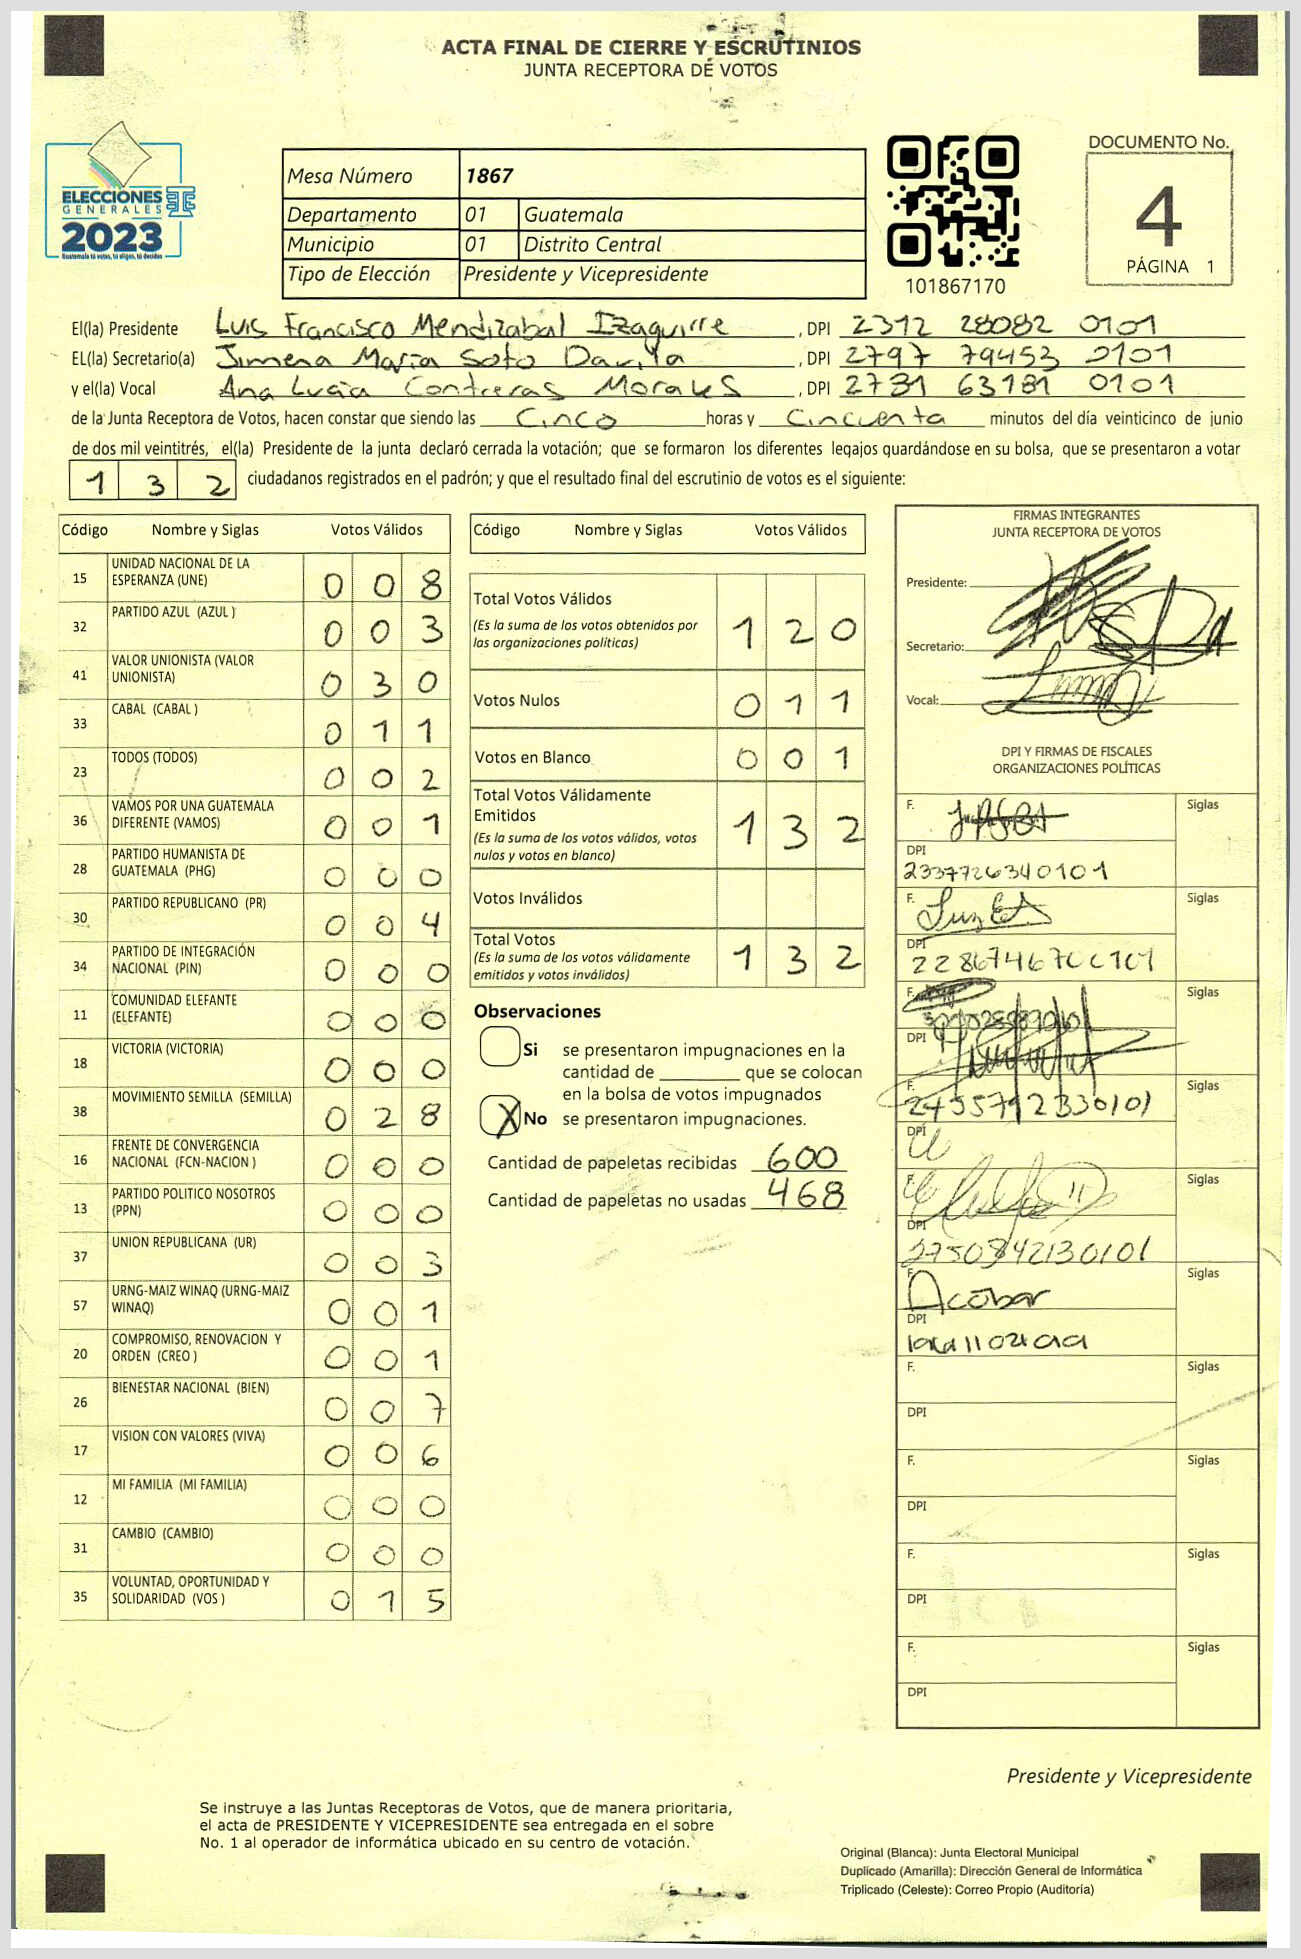 ACTA FINAL DE CIERRE Y ESCRUTINIOS
JUNTA RECEPTORA DE VOTOS
ELECCIONES
GENERALES
2023
Guatemala tú votas, tú eliges, tú decides
Mesa Número 1867
Departamento 01 Guatemala
Municipio 01 Distrito Central
Tipo de Elección Presidente y Vicepresidente
101867170
DOCUMENTO No.
4
PÁGINA 1
El(la) Presidente Luis Francisco Mendizabal Izaguirre, DPI 2312 28082 0101
EL(la) Secretario(a) Jimena Maria Soto Davila, DPI 2797 79453 0101
y el(la) Vocal Ana Lucia Contreras Morales, DPI 2731 63181 0101
de la Junta Receptora de Votos, hacen constar que siendo las Cinco horas y Cincuenta minutos del día veinticinco de junio
de dos mil veintitrés, el(la) Presidente de la junta declaró cerrada la votación; que se formaron los diferentes legajos guardándose en su bolsa, que se presentaron a votar
1 3 2 ciudadanos registrados en el padrón; y que el resultado final del escrutinio de votos es el siguiente:
Código Nombre y Siglas Votos Válidos
15 UNIDAD NACIONAL DE LA ESPERANZA (UNE) 0 0 8
32 PARTIDO AZUL (AZUL ) 0 0 3
41 VALOR UNIONISTA (VALOR UNIONISTA) 0 3 0
33 CABAL (CABAL ) 0 1 1
23 TODOS (TODOS) 0 0 2
36 VAMOS POR UNA GUATEMALA DIFERENTE (VAMOS) 0 0 1
28 PARTIDO HUMANISTA DE GUATEMALA (PHG) 0 0 0
30 PARTIDO REPUBLICANO (PR) 0 0 4
34 PARTIDO DE INTEGRACIÓN NACIONAL (PIN) 0 0 0
11 COMUNIDAD ELEFANTE (ELEFANTE) 0 0 0
18 VICTORIA (VICTORIA) 0 0 0
38 MOVIMIENTO SEMILLA (SEMILLA) 0 2 8
16 FRENTE DE CONVERGENCIA NACIONAL (FCN-NACION ) 0 0 0
13 PARTIDO POLITICO NOSOTROS (PPN) 0 0 0
37 UNION REPUBLICANA (UR) 0 0 3
57 URNG-MAIZ WINAQ (URNG-MAIZ WINAQ) 0 0 1
20 COMPROMISO, RENOVACION Y ORDEN (CREO ) 0 0 1
26 BIENESTAR NACIONAL (BIEN) 0 0 7
17 VISION CON VALORES (VIVA) 0 0 6
12 MI FAMILIA (MI FAMILIA) 0 0 0
31 CAMBIO (CAMBIO) 0 0 0
35 VOLUNTAD, OPORTUNIDAD Y SOLIDARIDAD (VOS ) 0 1 5
Código Nombre y Siglas Votos Válidos
Total Votos Válidos 1 2 0
(Es la suma de los votos obtenidos por
las organizaciones políticas)
Votos Nulos 0 1 1
Votos en Blanco 0 0 1
Total Votos Válidamente
Emitidos 1 3 2
(Es la suma de los votos válidos, votos
nulos y votos en blanco)
Votos Inválidos
Total Votos 1 3 2
(Es la suma de los votos válidamente
emitidos y votos inválidos)
Observaciones
Si se presentaron impugnaciones en la
cantidad de ________ que se colocan
en la bolsa de votos impugnados
X No se presentaron impugnaciones.
Cantidad de papeletas recibidas 600
Cantidad de papeletas no usadas 468
FIRMAS INTEGRANTES
JUNTA RECEPTORA DE VOTOS
Presidente:
Secretario:
Vocal:
DPI Y FIRMAS DE FISCALES
ORGANIZACIONES POLÍTICAS
F. Siglas
DPI
2337726340101
F. Siglas
DPI
F. Siglas
DPI
F. Siglas
2455792330101
DPI
F. Siglas
DPI
2750842130101
F. Acobar Siglas
DPI
F. Siglas
DPI
F. Siglas
DPI
F. Siglas
DPI
F. Siglas
DPI
Presidente y Vicepresidente
Se instruye a las Juntas Receptoras de Votos, que de manera prioritaria,
el acta de PRESIDENTE Y VICEPRESIDENTE sea entregada en el sobre
No. 1 al operador de informática ubicado en su centro de votación.
Original (Blanca): Junta Electoral Municipal
Duplicado (Amarilla): Dirección General de Informática
Triplicado (Celeste): Correo Propio (Auditoría)